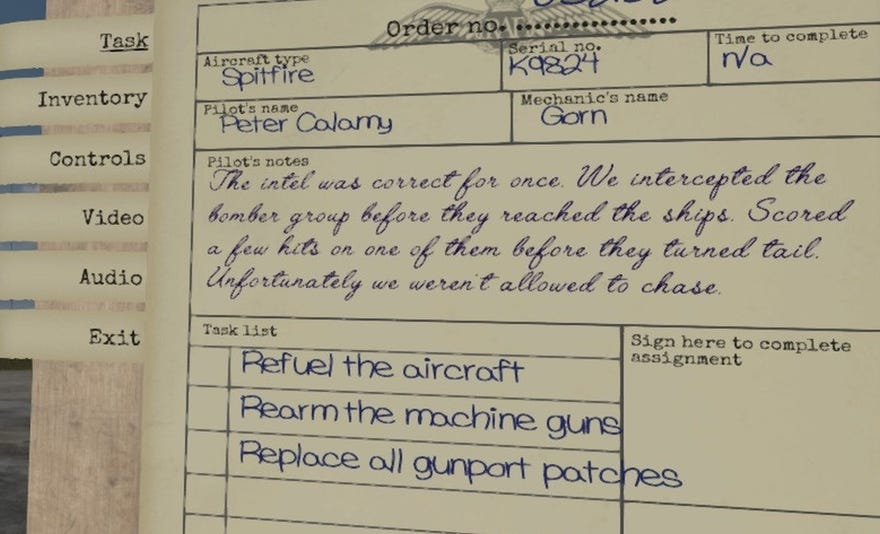 Task
Inventory
Controls
Video
Audio
Exit
Order no.
Aircraft type
Spitfire
Serial no.
K9824
Time to complete
n/a
Pilot's name
Peter Calamy
Mechanic's name
Gorn
Pilot's notes
The intel was correct for once. We intercepted the
bomber group before they reached the ships. Scored
a few hits on one of them before they turned tail.
Unfortunately we weren't allowed to chase.
Task list
Refuel the aircraft
Rearm the machine guns
Replace all gunport patches
Sign here to complete
assignment